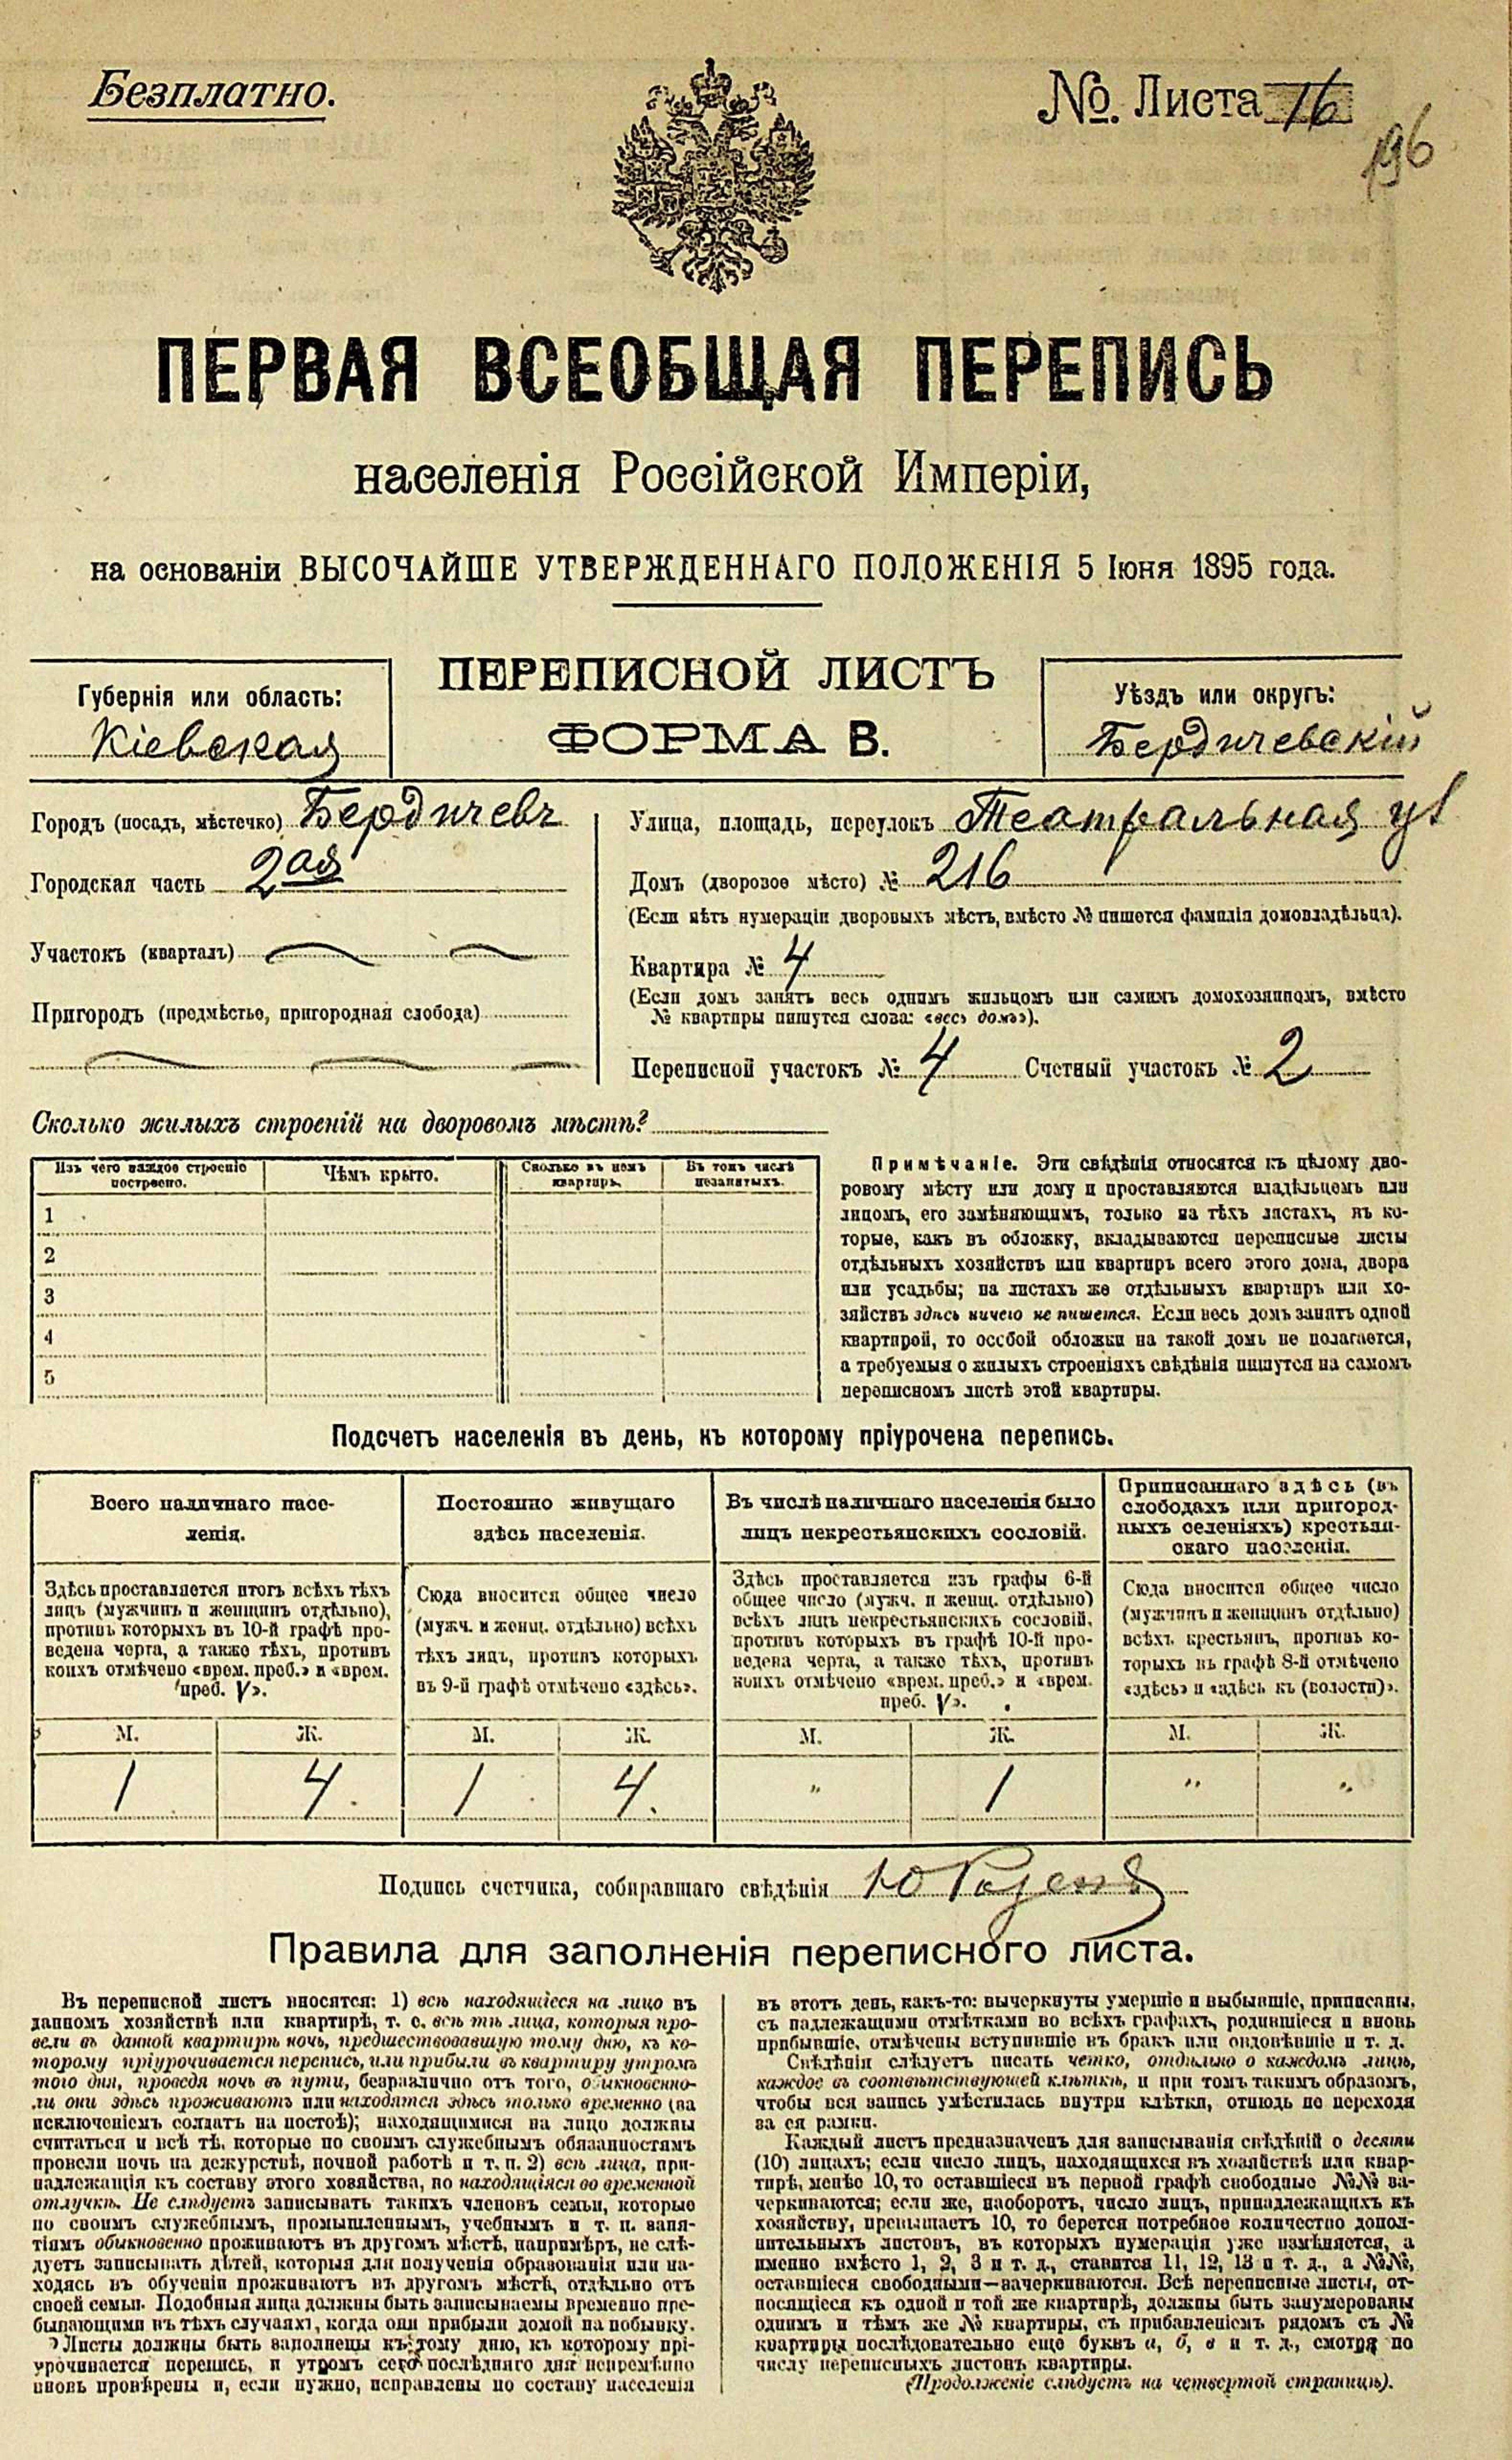 Безплатно.
№. Листа 16
196
ПЕРВАЯ ВСЕОБЩАЯ ПЕРЕПИСЬ
населенія Россійской Имперіи,
на основаніи ВЫСОЧАЙШЕ УТВЕРЖДЕННАГО ПОЛОЖЕНІЯ 5 Іюня 1895 года.
Губернія или область:
Кіевская
ПЕРЕПИСНОЙ ЛИСТЪ
ФОРМА В.
Уѣздъ или округъ:
Бердичевскій
Городъ (посадъ, мѣстечко) Бердичевъ
Городская часть 2ая
Участокъ (кварталъ)
Пригородъ (предмѣстье, пригородная слобода)
Улица, площадь, переулокъ Театральная ул
Домъ (дворовое мѣсто) № 216
(Если нѣтъ нумераціи дворовыхъ мѣстъ, вмѣсто № пишется фамилія домовладѣльца).
Квартира № 4
(Если домъ занятъ весь однимъ жильцомъ или самимъ домохозяиномъ, вмѣсто
№ квартиры пишутся слова: «весь домъ»).
Переписной участокъ № 4 Счетный участокъ № 2
Сколько жилыхъ строеній на дворовомъ мѣстѣ?
Изъ чего каждое строеніе
построено.
Чѣмъ крыто.
Сколько въ немъ
квартиръ.
Въ томъ числѣ
незанятыхъ.
1
2
3
4
5
Примѣчаніе. Эти свѣдѣнія относятся къ цѣлому дво-
ровому мѣсту или дому и проставляются владѣльцемъ или
лицомъ, его замѣняющимъ, только на тѣхъ листахъ, въ ко-
торые, какъ въ обложку, вкладываются переписные листы
отдѣльныхъ хозяйствъ или квартиръ всего этого дома, двора
или усадьбы; на листахъ же отдѣльныхъ квартиръ или хо-
зяйствъ здѣсь ничего не пишется. Если весь домъ занятъ одной
квартирой, то особой обложки на такой домъ не полагается,
а требуемыя о жилыхъ строеніяхъ свѣдѣнія пишутся на самомъ
переписномъ листѣ этой квартиры.
Подсчетъ населенія въ день, къ которому пріурочена перепись.
Всего наличнаго насе-
ленія.
Здѣсь проставляется итогъ всѣхъ тѣхъ
лицъ (мужчинъ и женщинъ отдѣльно),
противъ которыхъ въ 10-й графѣ про-
ведена черта, а также тѣхъ, противъ
коихъ отмѣчено «врем. преб.» и «врем.
преб. V».
М. Ж.
1 4
Постоянно живущаго
здѣсь населенія.
Сюда вносится общее число
(мужч. и женщ. отдѣльно) всѣхъ
тѣхъ лицъ, противъ которыхъ
въ 9-й графѣ отмѣчено «здѣсь».
М. Ж.
1 4.
Въ числѣ наличнаго населенія было
лицъ некрестьянскихъ сословій.
Здѣсь проставляется изъ графы 6-й
общее число (мужч. и женщ. отдѣльно)
всѣхъ лицъ некрестьянскихъ сословій,
противъ которыхъ въ графѣ 10-й про-
ведена черта, а также тѣхъ, противъ
коихъ отмѣчено «врем. преб.» и «врем.
преб. V».
М. Ж.
" 1
Приписаннаго здѣсь (въ
слободахъ или пригород-
ныхъ селеніяхъ) крестьян-
скаго населенія.
Сюда вносится общее число
(мужчинъ и женщинъ отдѣльно)
всѣхъ крестьянъ, противъ ко-
торыхъ въ графѣ 8-й отмѣчено
«здѣсь» и «здѣсь къ (волости)».
М. Ж.
" "
Подпись счетчика, собиравшаго свѣдѣнія
Правила для заполненія переписного листа.
Въ переписной листъ вносятся: 1) всѣ находящіеся на лицо въ
данномъ хозяйствѣ или квартирѣ, т. е. всѣ тѣ лица, которыя про-
вели въ данной квартирѣ ночь, предшествовавшую тому дню, къ ко-
торому пріурочивается перепись, или прибыли въ квартиру утромъ
того дня, проведя ночь въ пути, безразлично отъ того, обыкновенно-
ли они здѣсь проживаютъ или находятся здѣсь только временно (за
исключеніемъ солдатъ на постоѣ); находящимися на лицо должны
считаться и всѣ тѣ, которые по своимъ служебнымъ обязанностямъ
провели ночь на дежурствѣ, ночной работѣ и т. п. 2) всѣ лица, при-
надлежащія къ составу этого хозяйства, но находящіяся во временной
отлучкѣ. Не слѣдуетъ записывать такихъ членовъ семьи, которые
по своимъ служебнымъ, промышленнымъ, учебнымъ и т. п. заня-
тіямъ обыкновенно проживаютъ въ другомъ мѣстѣ, напримѣръ, не слѣ-
дуетъ записывать дѣтей, которыя для полученія образованія или на-
ходясь въ обученіи проживаютъ въ другомъ мѣстѣ, отдѣльно отъ
своей семьи. Подобныя лица должны быть записываемы временно пре-
бывающими въ тѣхъ случаяхъ, когда они прибыли домой на побывку.
Листы должны быть заполнены къ тому дню, къ которому прі-
урочивается перепись, и утромъ сего послѣдняго дня непремѣнно
вновь провѣрены и, если нужно, исправлены по составу населенія
въ этотъ день, какъ-то: вычеркнуты умершіе и выбывшіе, приписаны,
съ надлежащими отмѣтками во всѣхъ графахъ, родившіеся и вновь
прибывшіе, отмѣчены вступившіе въ бракъ или овдовѣвшіе и т. д.
Свѣдѣнія слѣдуетъ писать четко, отдѣльно о каждомъ лицѣ,
каждое въ соотвѣтствующей клѣткѣ, и при томъ такимъ образомъ,
чтобы вся запись умѣстилась внутри клѣтки, отнюдь не переходя
за ея рамки.
Каждый листъ предназначенъ для записыванія свѣдѣній о десяти
(10) лицахъ; если число лицъ, находящихся въ хозяйствѣ или квар-
тирѣ, менѣе 10, то оставшіеся въ первой графѣ свободные №№ за-
черкиваются; если же, наоборотъ, число лицъ, принадлежащихъ къ
хозяйству, превышаетъ 10, то берется потребное количество допол-
нительныхъ листовъ, въ которыхъ нумерація уже измѣняется, а
именно вмѣсто 1, 2, 3 и т. д., ставится 11, 12, 13 и т. д., а №№,
оставшіеся свободными—зачеркиваются. Всѣ переписные листы, от-
носящіеся къ одной и той же квартирѣ, должны быть занумерованы
однимъ и тѣмъ же № квартиры, съ прибавленіемъ рядомъ съ №
квартиры послѣдовательно еще буквъ а, б, в и т. д., смотря по
числу переписныхъ листовъ квартиры.
(Продолженіе слѣдуетъ на четвертой страницѣ).